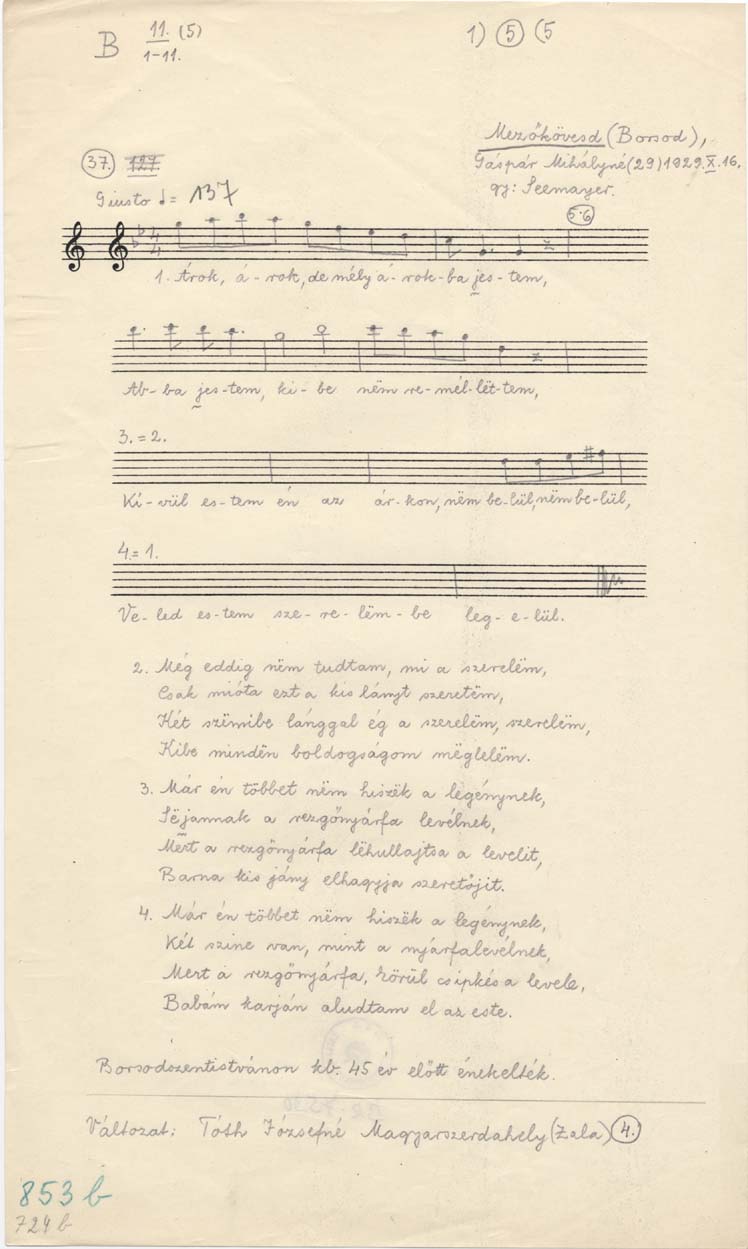 B 11. (5)
1–11.
1) 5 (5
Mezőkövesd (Borsod),
37. 127
Gáspár Mihályné (29) 1929. X. 16.
gy: Seemayer.
Giusto ♩= 137
5·6
4
4
1. Árok, á-rok, de mély á-rok-ba jes-tem,
Ab-ba jes-tem, ki-be nëm re-mél-lët-tem,
3. = 2.
Kí-vül es-tem én az ár-kon, nëm be-lül, nëm be-lül,
4. = 1.
Ve-led es-tem sze-re-lëm-be leg-e-lül.
2. Még eddig nëm tudtam, mi a szerelëm,
Csak mióta ezt a kis lányt szeretëm,
Két szëmibe lánggal ég a szerelëm, szerelëm,
Kibe mindën boldogságom mëglelëm.
3. Már én többet nëm hiszëk a legénynek,
Sëjannak a rezgőnyárfa levélnek,
Mert a rezgőnyárfa lëhullajtsa a levelit,
Barna kis jány elhagyja szeretőjit.
4. Már én többet nëm hiszëk a legénynek,
Két szine van, mint a nyárfalevélnek,
Mert a rezgőnyárfa, körül csipkés a levele,
Babám karján aludtam el az este.
Borsodszentistvánon kb. 45 év előtt énekelték.
Változat: Tóth Józsefné Magyarszerdahely (Zala) 4.
853 b
724 b